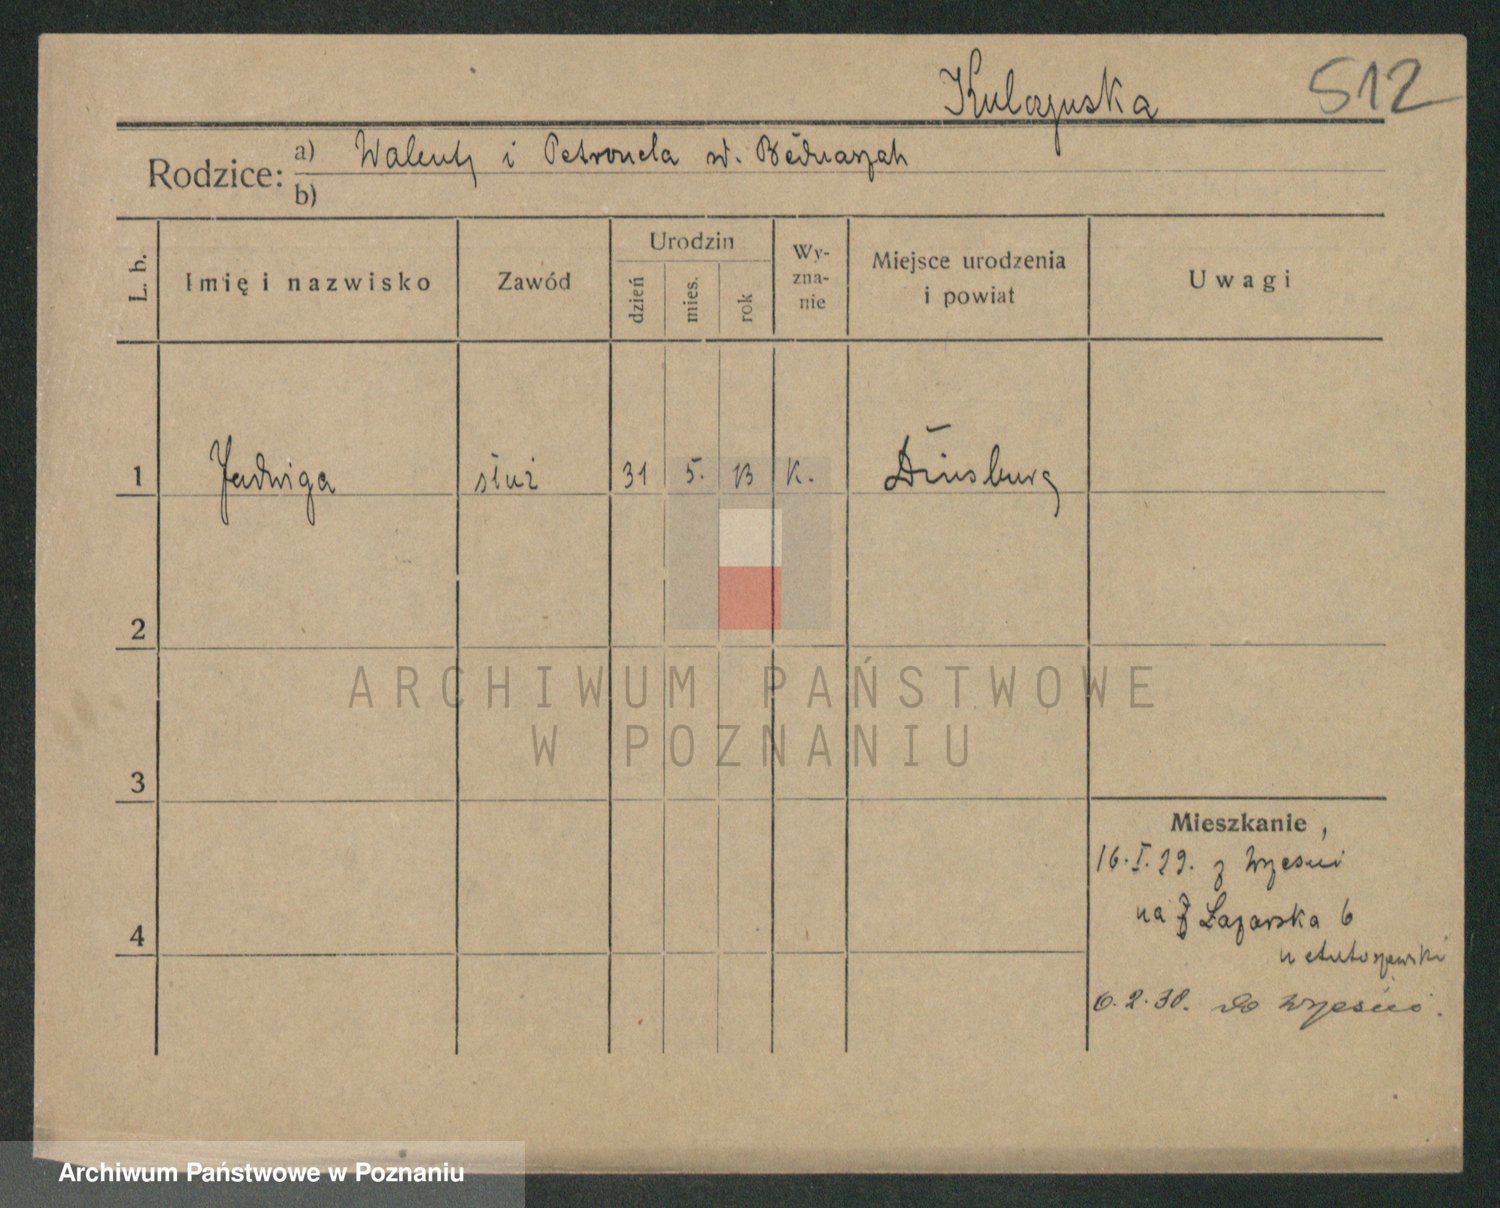 Kulczynska
512
Rodzice:
a) Walenty i Petronela
b)
L. b.
Imię i nazwisko
Zawód
Urodzin
dzień
mies.
rok
Wy-
zna-
nie
Miejsce urodzenia
i powiat
Uwagi
1 Jadwiga służ 31 5. 13 K. Duisburg
2
3
4
Mieszkanie
16.I.29. z Wrześni
na Łazarska 6
u
6.2.30. do Wrześni.
ARCHIWUM PAŃSTWOWE
W POZNANIU
Archiwum Państwowe w Poznaniu